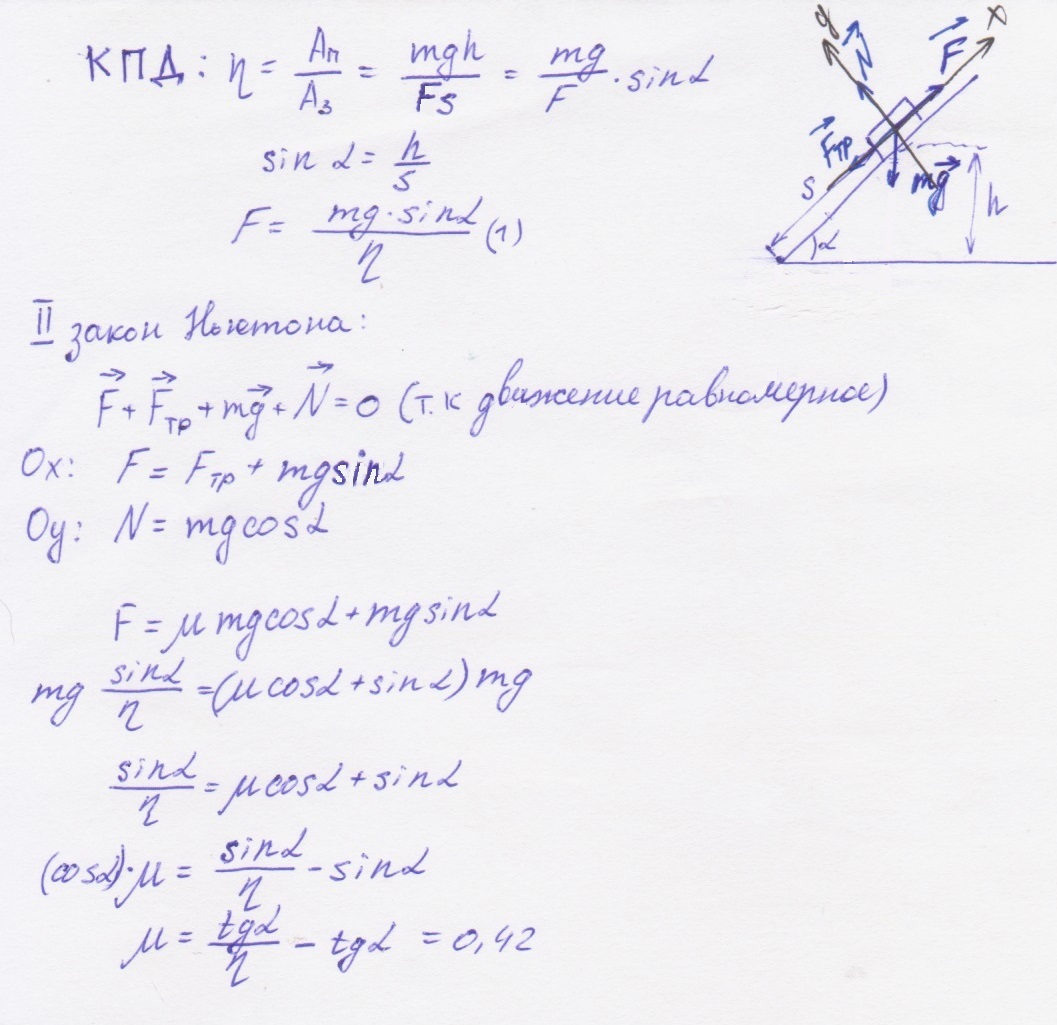 КПД: η = Aп/Aз = mgh/FS = mg/F · sinα
sin α = h/s
F = mg·sinα/η (1)
II закон Ньютона:
F⃗ + F⃗тр + mg⃗ + N⃗ = 0 (т.к движение равномерное)
Ox: F = Fтр + mgsinα
Oy: N = mgcosα
F = μ mgcosα + mgsinα
mg sinα/η = (μcosα + sinα) mg
sinα/η = μcosα + sinα
(cosα)·μ = sinα/η - sinα
μ = tgα/η - tgα = 0,42
y
N⃗
F⃗
x
F⃗тр
S
mg⃗
h
α